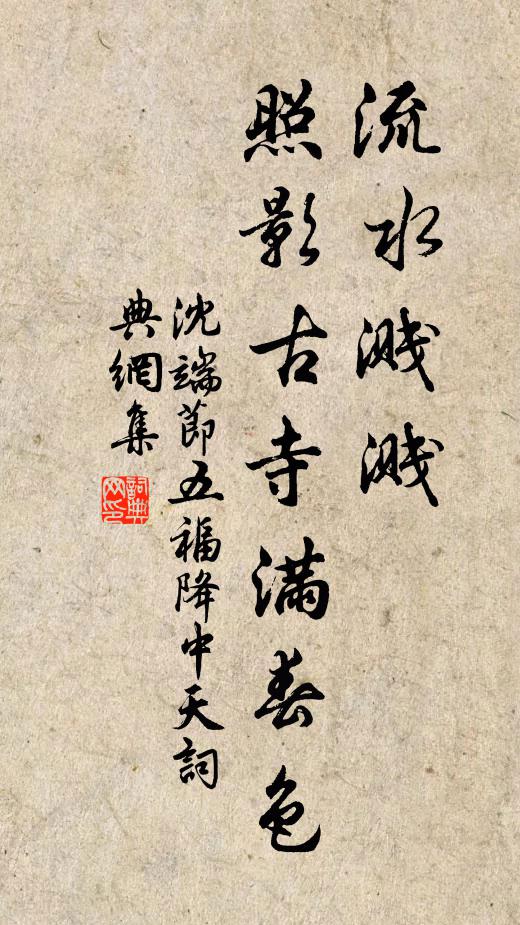 流水濺濺
照影古寺滿春色
沈端節五福降中天詞
典網集
詞典網印